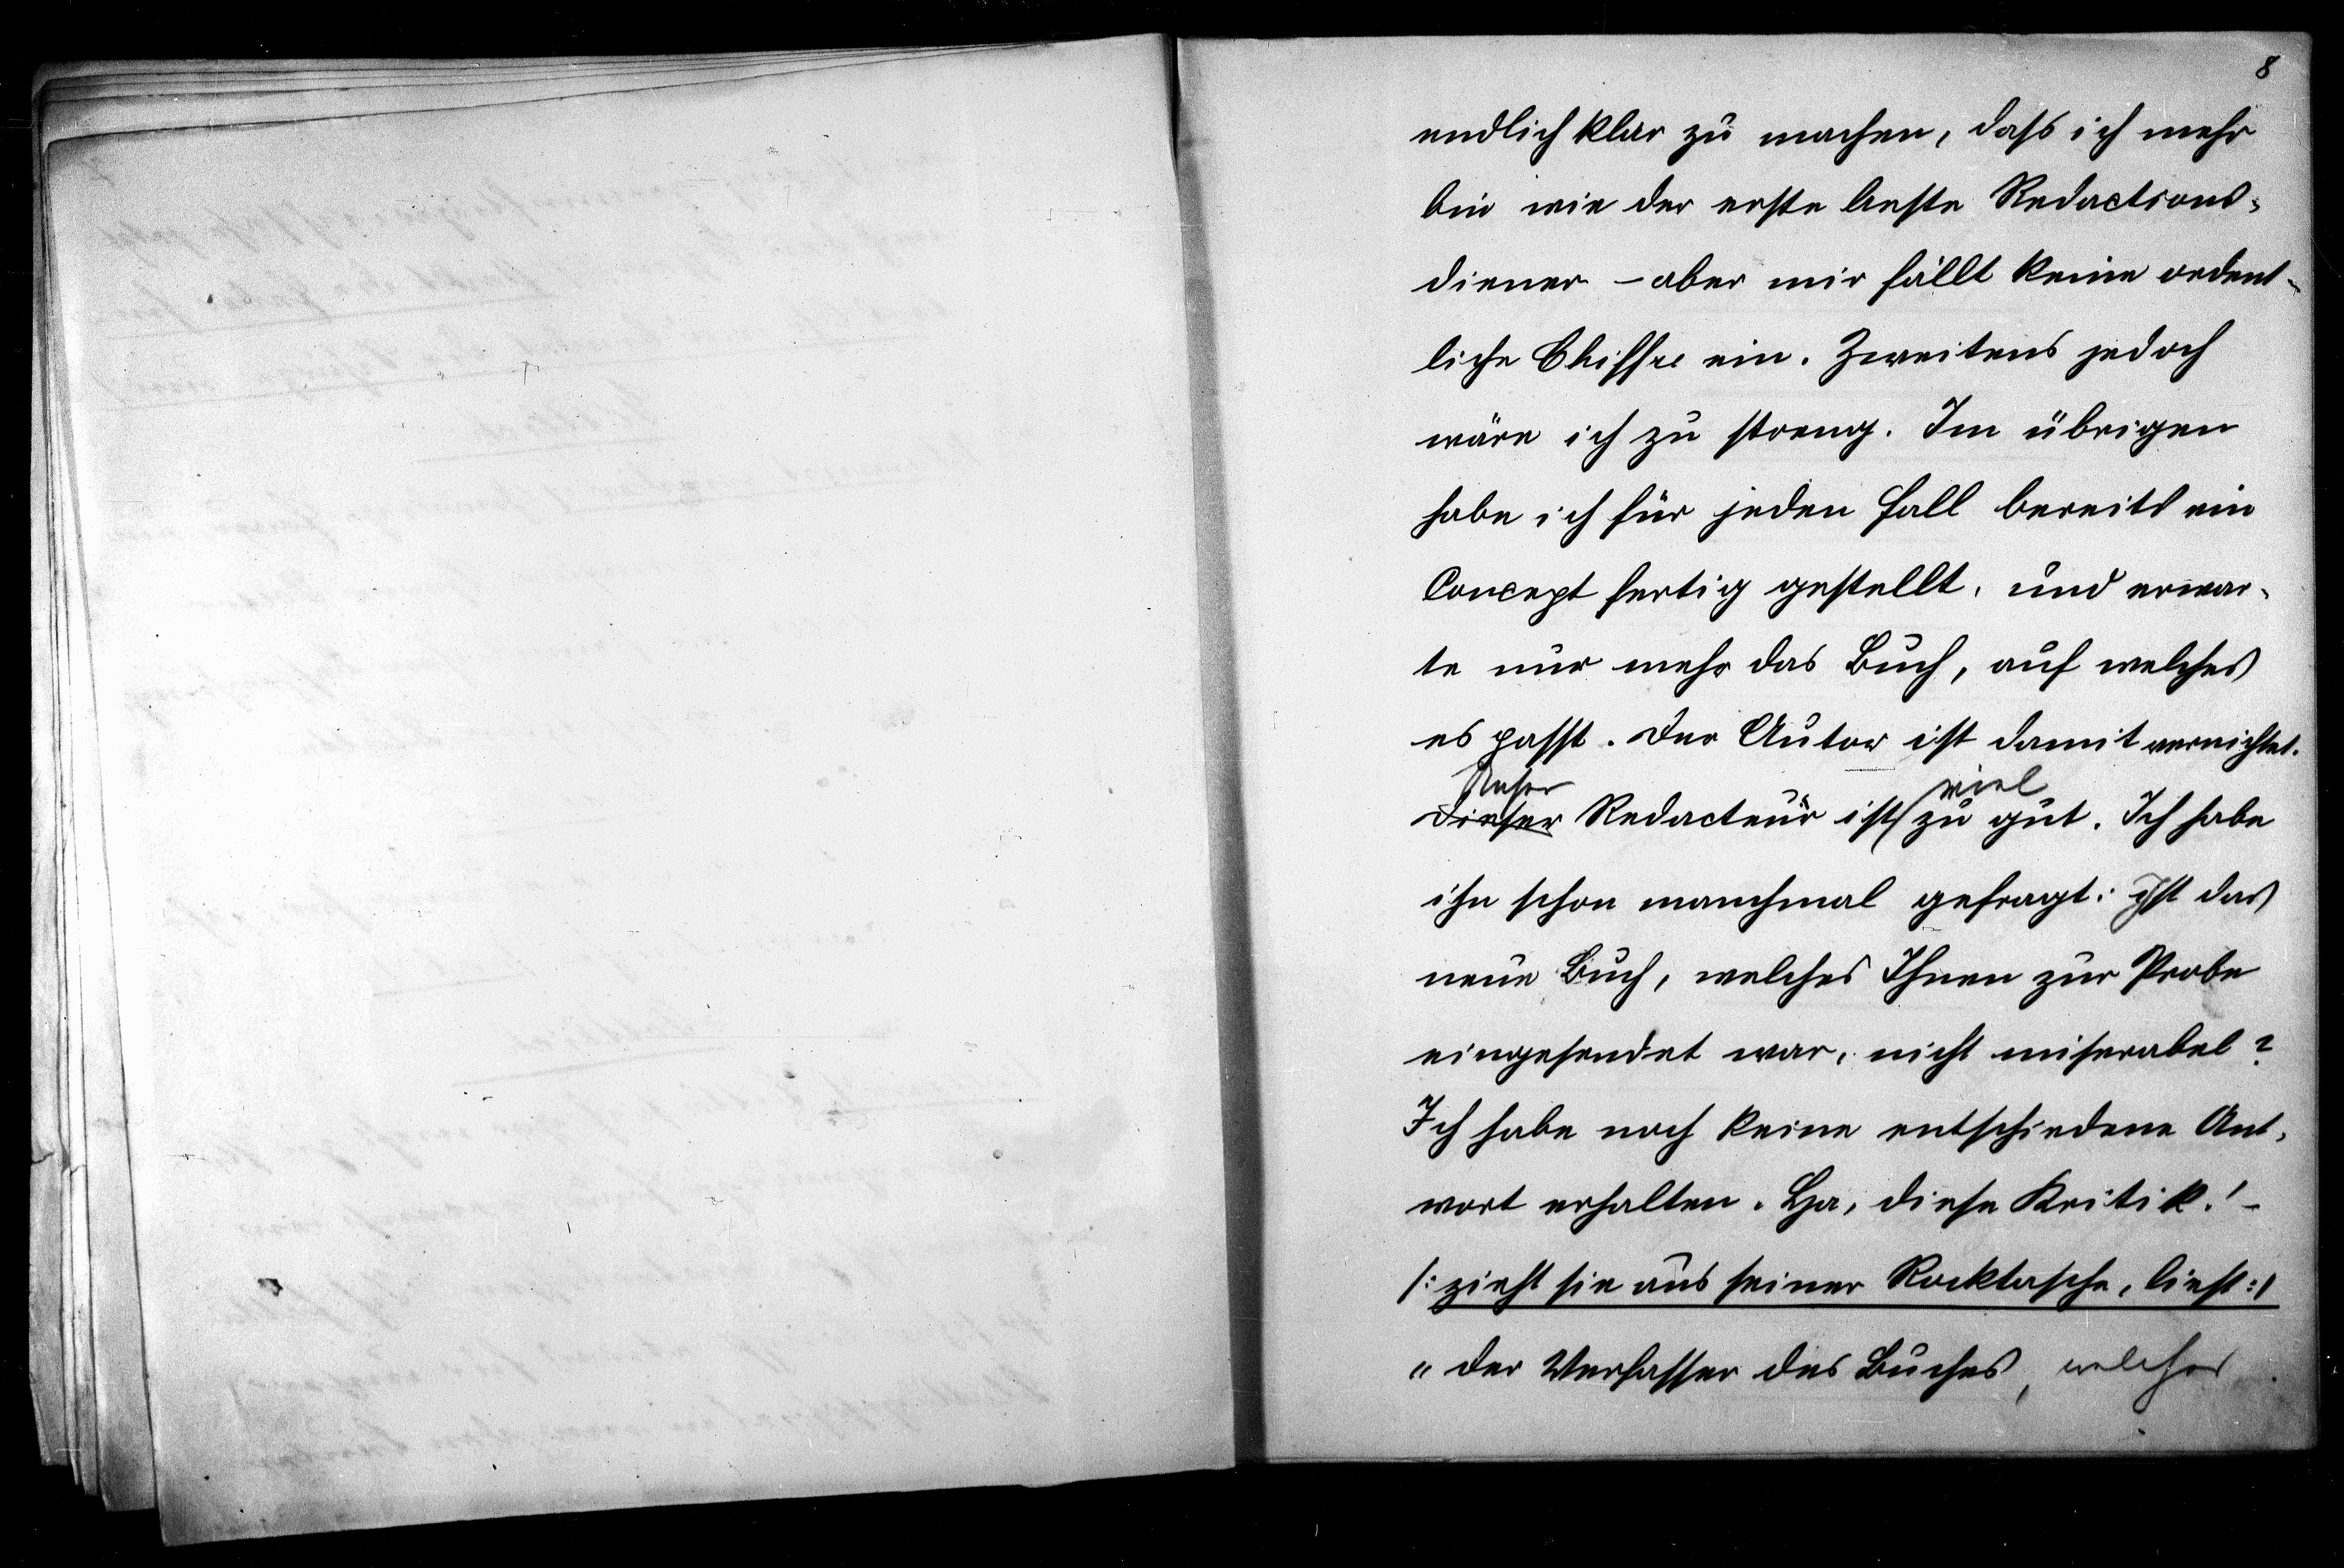 8
endlich klar zu machen, dass ich mehr
bin wie der erste beste Redactions-
diener – aber mir fällt keine ordent-
liche Chiffre ein. Zweitens jedoch
wäre ich zu streng. Im übrigen
habe ich für jeden Fall bereits ein
Concept fertig gestellt, und erwar-
te nur mehr das Buch, auf welches
es passt. Der Autor ist damit vernichtet.
Unser viel
Dieser Redacteur ist zu gut. Ich habe
ihn schon manchmal gefragt: Ist das
neue Buch, welches Ihnen zur Probe
eingesendet war, nicht miserabel?
Ich habe noch keine entschiedene Ant-
wort erhalten. Ha, diese Kritik! –
/: zieht sie aus seiner Rocktasche, liest :/
„ Der Verfasser des Buches, welches